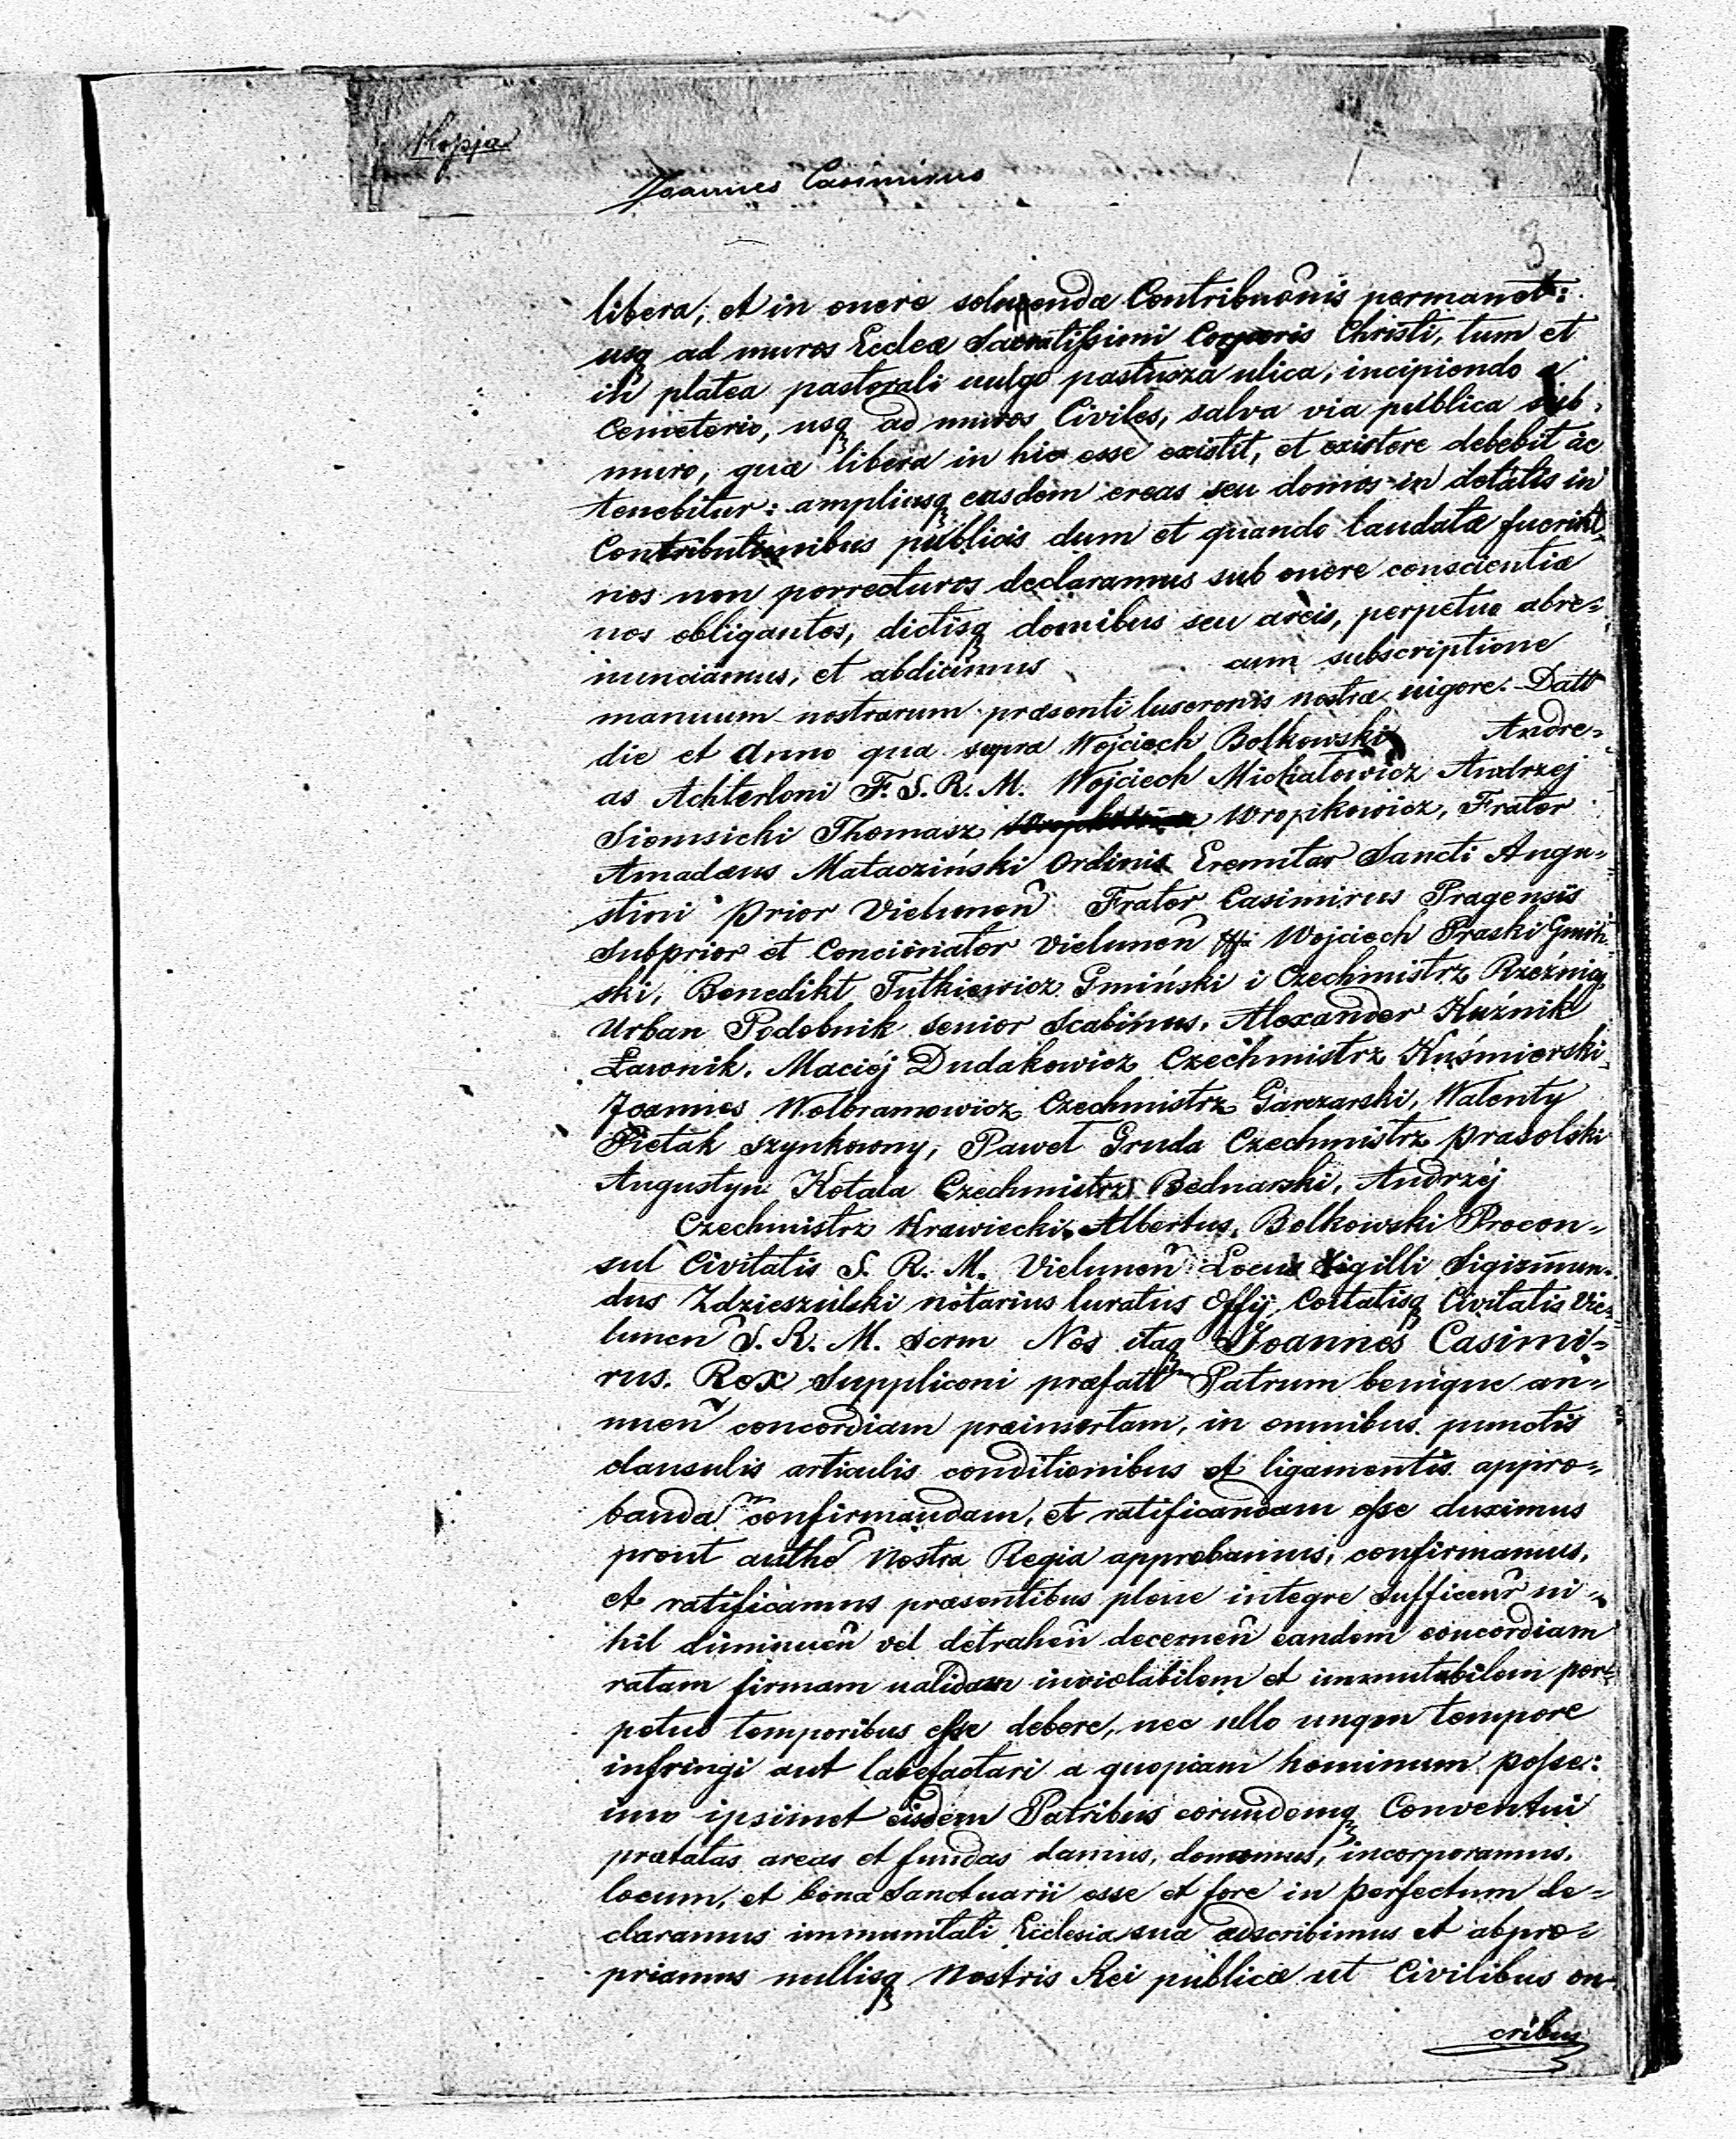 Kopja
Joannes Casimirus
3
libera, et in onere soluendæ Contribuõnis permanet:
usq ad muros Eccleæ Sacratissimi Corporis Christi, tum et
in platea pastorali uulgo pastusza ulica, incipiendo a
Cemeterio, usq ad muros Civiles, salva via publica sub
muro, quæ libera in hic esse existit, et existere debebit ac
tenebitur: ampliusq easdem ereas seu domos in detatis in
Contributionibus publicis dum et quando laudatæ fuerint
nos non porrecturos declaramus sub onere conscientiæ
nos obligantes, dictisq domibus seu areis, perpetuo abre=
nunciamus, et abdicimus cum subscriptione
manuum nostrarum præsenti Inscronis nostræ uigore. Datt
die et Anno qua supra Wojciech Bolkowski Andre=
as Achterloni F. S. R. M. Wojciech Michałowicz Andrzej
Siemsichi Thomasz Wropikowicz, Frater
Amadæus Mataoziński Ordinis Eremitar Sancti Augu=
stini Prior Vielunen Frater Casimirus Pragensis
Subprior et Concionator Vielunen Wojciech Praski Gmiń
ski, Benedikt Tutkiewicz Gmiński i Czechmistrz Rzeźnicy
Urban Podobnik senior Scabinus, Alexander Kuźnik
Ławnik, Maciéj Dudakowicz Czechmistrz Kuśmierski
Joannes Wolbramowicz Czechmistrz Garczarski, Walenty
Piętak szynkowny, Paweł Gruda Czechmistrz prasolski
Augustyn Kotala Czechmistrz Bednarski, Andrzéj
Czechmistrz Krawiecki, Albertus Bolkowski Procon=
sul Civitatis S. R. M. Vielunen Locus Sigilli Sigizmun=
dus Zdzieszulski notarius Iuratus Offij Coitatisq Civitatis Vie=
lunen S. R. M. scrm Nos itaq Joannes Casimi=
rus. Rex Suppliconi præfatt Patrum benigne an=
nuen concordiam præinsertam, in omnibus punctis
clausulis articulis conditionibus et ligamentis appro=
banda^m confirmandam, et ratificandam esse duximus
prout authe Nostra Regia approbamus, confirmamus,
et ratificamus præsentibus plene integre sufficenr ni=
hil diminuen vel detrahen decernen eandem concordiam
ratam firmam ualidam inviolabilem et immutabilem per=
petuo temporibus esse debere, nec ullo unqm tempore
infringi aut labefactari a quopiam hominum posse:
imo ipsimet eisdem Patribus eorundemq Conventui
prætatas areas et fundas damus, donamus, incorporamus,
locum, et bona Sanctuarii esse et fore in perfectum de=
claramus immunitati Ecclesiæ suæ adscribimus et abpro=
priamus nullisq Nostris Rei publicæ ut Civilibus on
eribus